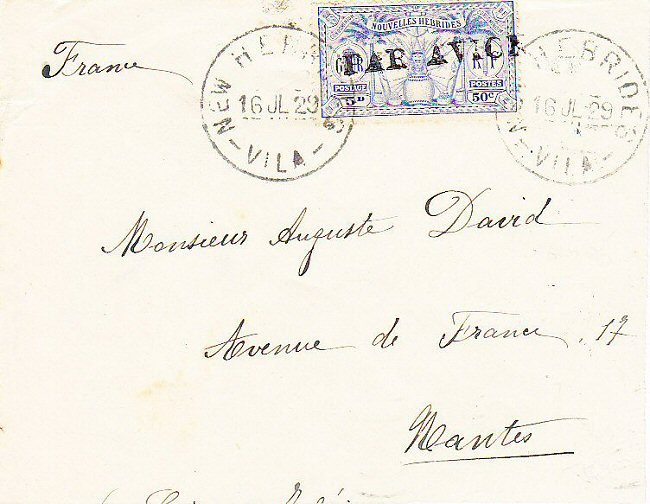 NOUVELLES HÉBRIDES
PAR AVION
POSTAGE POSTES
5D 50c
NEW HEBRIDES
16 JL 29
VILA
NEW HEBRIDES
16 JL 29
VILA
France
Monsieur Auguste David
Avenue de France, 17
Nantes